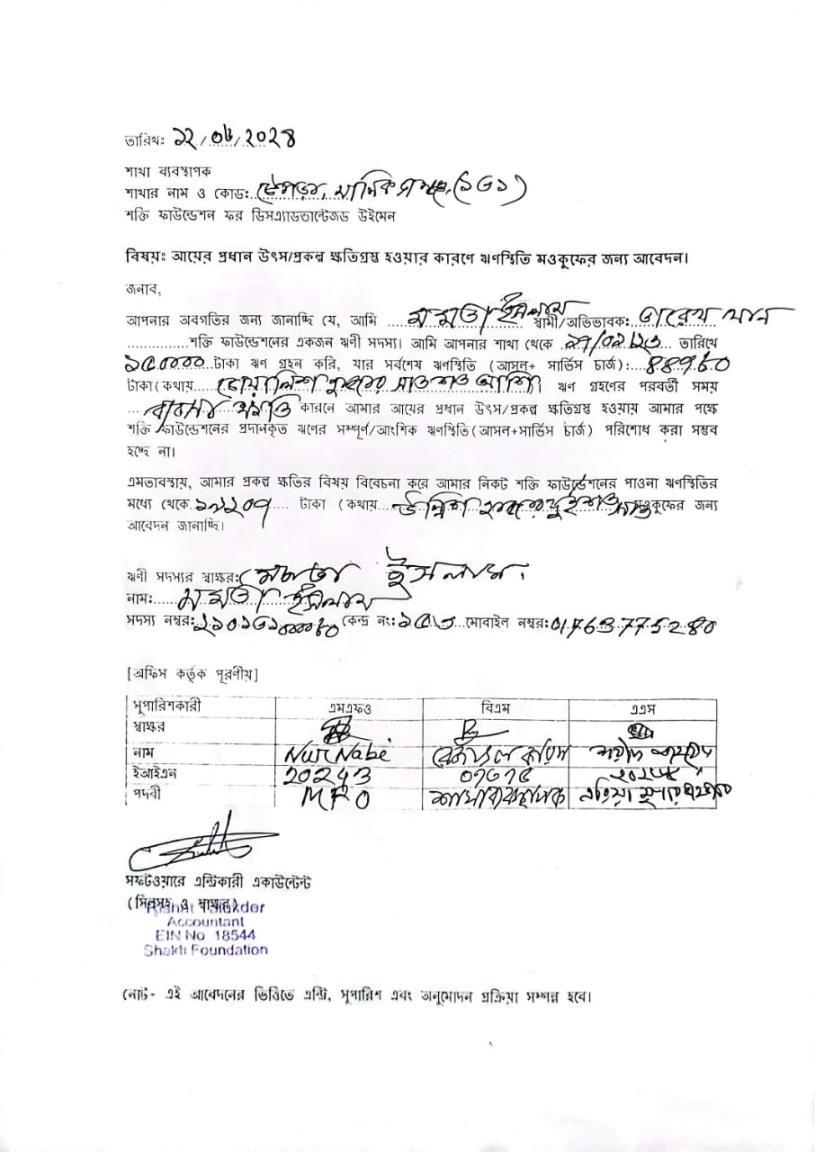 তারিখঃ ১২/০৬/২০২৪
শাখা ব্যবস্থাপক
শাখার নাম ও কোডঃ টেপড়া, মানিকগঞ্জ, (১৫১)
শক্তি ফাউন্ডেশন ফর ডিসএ্যাডভান্টেজড উইমেন
বিষয়ঃ আয়ের প্রধান উৎস/প্রকল্প ক্ষতিগ্রস্ত হওয়ার কারণে ঋণস্থিতি মওকুফের জন্য আবেদন।
জনাব,
আপনার অবগতির জন্য জানাচ্ছি যে, আমি মমতা ইসলাম স্বামী/অভিভাবক: তারেখ খান
শক্তি ফাউন্ডেশনের একজন ঋণী সদস্য। আমি আপনার শাখা থেকে তারিখে
১৫০০০০ টাকা ঋণ গ্রহন করি, যার সর্বশেষ ঋণস্থিতি (আসল+ সার্ভিস চার্জ): ৪৪৭৮০
টাকা (কথায় চোয়াল্লিশ হাজার সাতশত আশি) ঋণ গ্রহণের পরবর্তী সময়
ব্যবসায় ক্ষতি কারনে আমার আয়ের প্রধান উৎস/প্রকল্প ক্ষতিগ্রস্ত হওয়ায় আমার পক্ষে
শক্তি ফাউন্ডেশনের প্রদানকৃত ঋণের সম্পূর্ণ/আংশিক ঋণস্থিতি (আসল+সার্ভিস চার্জ) পরিশোধ করা সম্ভব
হচ্ছে না।
এমতাবস্থায়, আমার প্রকল্প ক্ষতির বিষয় বিবেচনা করে আমার নিকট শক্তি ফাউন্ডেশনের পাওনা ঋণস্থিতির
মধ্যে থেকে ১৯২০৭ টাকা (কথায় উনিশ হাজার দুইশত সাত মওকুফের জন্য
আবেদন জানাচ্ছি।
ঋণী সদস্যর স্বাক্ষর: মমতা ইসলাম
নাম: মমতা ইসলাম
সদস্য নম্বর: কেন্দ্র নং: মোবাইল নম্বর: 01763775280
[অফিস কর্তৃক পূরণীয়]
সুপারিশকারী এমএফও বিএম এএস
স্বাক্ষর
নাম Nur Nabi রেজাউল করিম
ইআইএন 20243
পদবী MFO শাখা ব্যবস্থাপক এরিয়া সুপারভাইজার
সফটওয়ারে এন্ট্রিকারী একাউন্টেন্ট
(সিলসহ ও স্বাক্ষর)
Accountant
EIN No 18544
Shakti Foundation
নোট- এই আবেদনের ভিত্তিতে এন্ট্রি, সুপারিশ এবং অনুমোদন প্রক্রিয়া সম্পন্ন হবে।